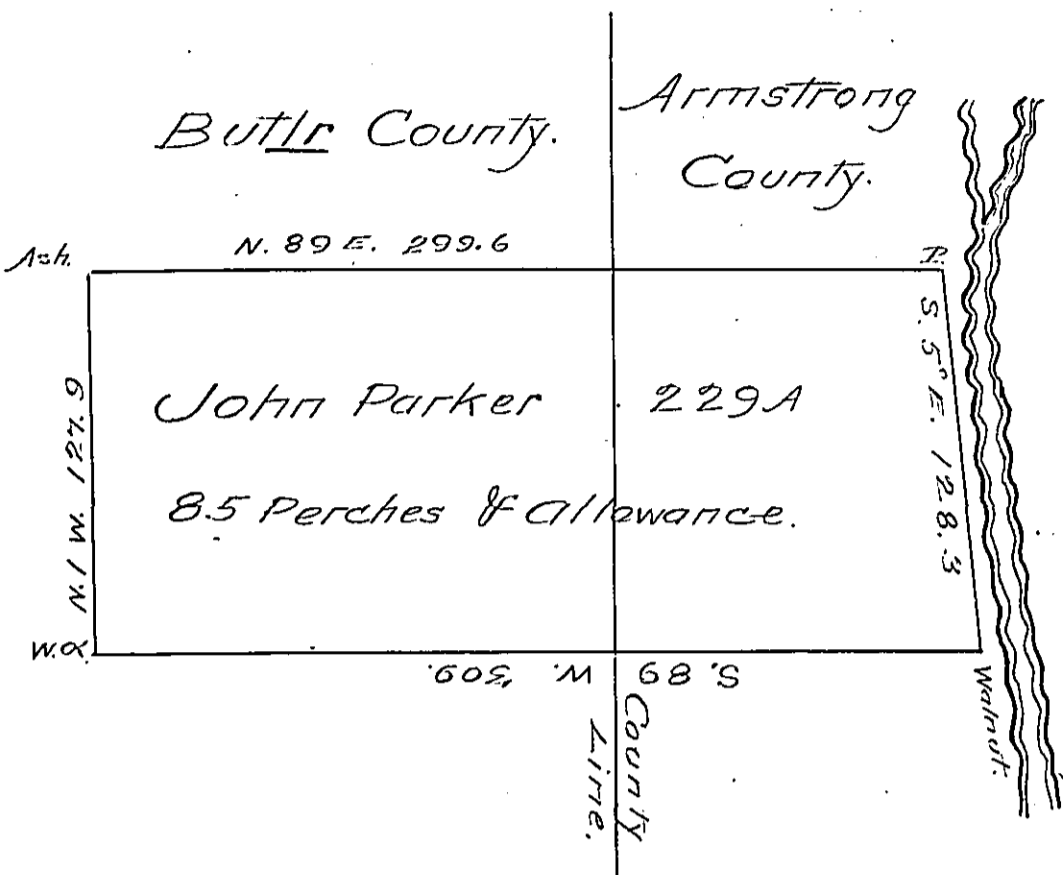 Butlr County.
Armstrong
County.
Ash.
N. 89 E. 299.6
P.
N. 1 W. 127.9
John Parker 229A
85 Perches & Allowance.
S. 5° E. 128.3
W.O.
S. 89 W. 309.
Walnut.
County
Line.